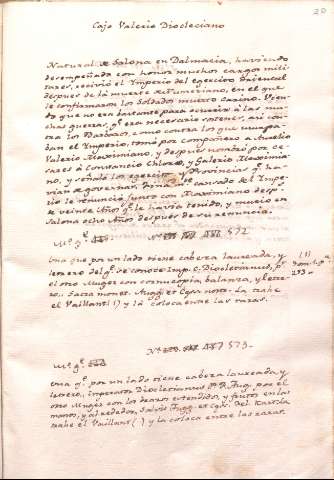 20
Cajo Valerio Diocleciano
Natural de Salona en Dalmacia, haviendo
desempeñado con honor muchos cargos mili-
tares, recivió el Imperio del egercito Oriental
despues de la muerte de Numeriano, en el que
le confirmaron los Soldados muerto Carino. Vien-
do que no era bastante para acudir á las mu-
chas guerras, q.e era necesario sostener, asi con-
tra los Barbaros, como contra los que
ban el Imperio, tomó por compañero a Aurelio
Valerio Maximiano, y despues nombró por ce-
sares á Constancio Chloro, y Galerio Maximia-
no, y señaló los egercitos y Provincias q.e ha-
vian de governar. cansado del Impe-
rio le renunció junto con Maximiano desp.s
de veinte años q.e le havia tenido, y murió en
Salona ocho años despues de su renuncia.
572
Una que por un lado tiene cabeza laureada, y
letrero del q.e se conoce Imp. C. Diocletianus, p.r
el otro Muger con cornucopia, balanza, y letre-
ro.. Sacra monet. Augg. et Caess. nostr. La trahe
el Vaillant (1) y la coloca entre las raras.
(1)
Tom. 3. p.a
253
573
Una q.e por un lado tiene cabeza laureada y
letrero, imperator Diocletianus P. F. Aug. por el
otro Muger con los brazos estendidos, y frutos en las
manos, y al rededor, Salvis Augg. et Caess. Fel. Kart. la
trahe el Vaillant ( ) y la coloca entre las raras.